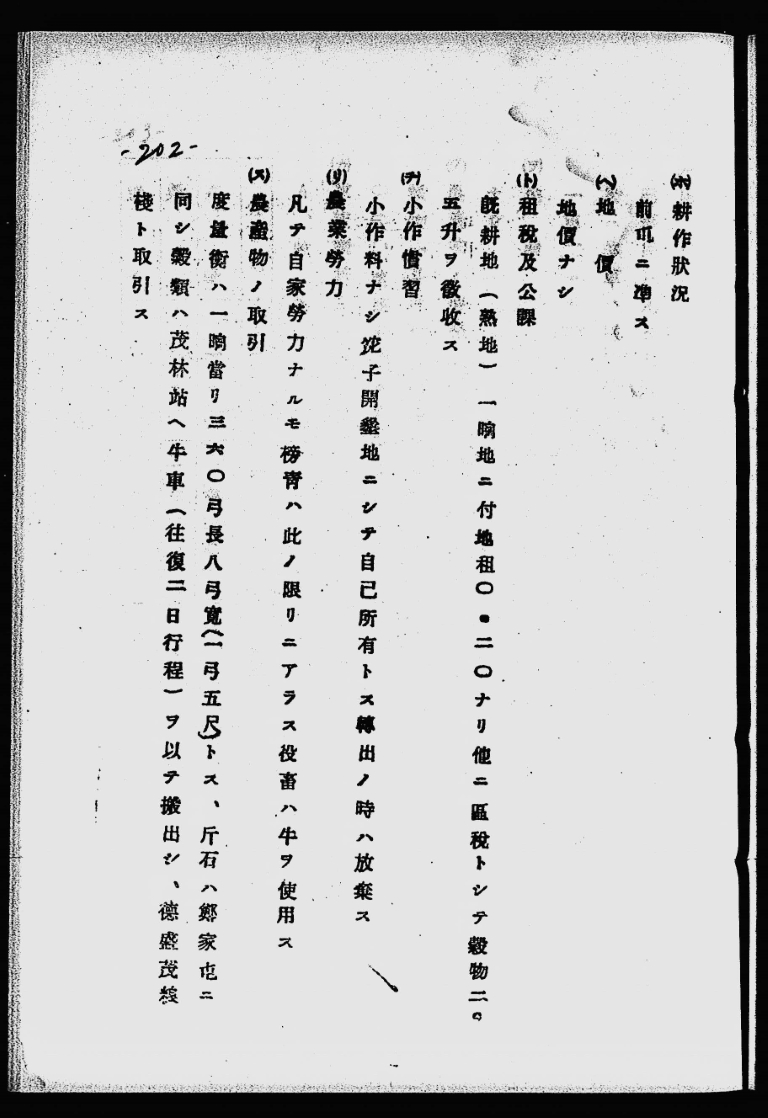 (ホ)耕作狀況
前屯ニ準ス
(ヘ)地價
地價ナシ
(ト)租稅及公課
既耕地(熟地)一晌地ニ付地租〇・二〇ナリ他ニ區稅トシテ穀物二〇
五升ヲ徵收ス
(チ)小作慣習
小作料ナシ沱子開墾地ニシテ自己所有トス轉出ノ時ハ放棄ス
(リ)農業勞力
凡テ自家勞力ナルモ榜青ハ此ノ限リニアラス役畜ハ牛ヲ使用ス
(ヌ)農產物ノ取引
度量衡ハ一晌當リ三六〇弓長八弓寬(一弓五尺)トス、斤石ハ鄭家屯ニ
同シ穀類ハ茂林站ヘ牛車(往復二日行程)ヲ以テ搬出シ、德盛茂糧
棧ト取引ス
-202-